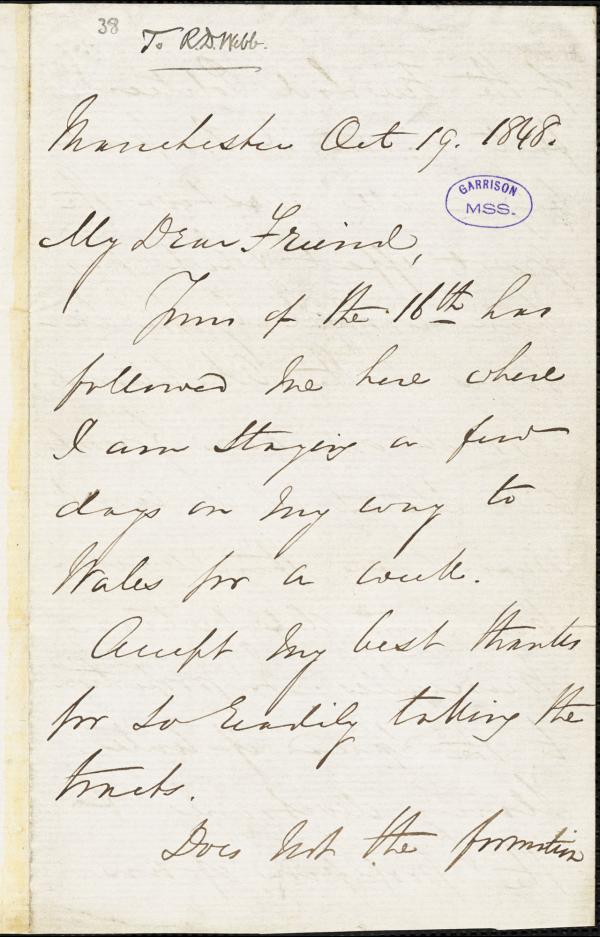 38
To R.D. Webb.
Manchester Oct 19. 1848.
GARRISON
MSS.
My Dear Friend,
Yours of the 16th has
followed me here where
I am staying a few
days on my way to
Wales for a week.
Accept my best thanks
for so readily taking the
tracts.
Does not the formation